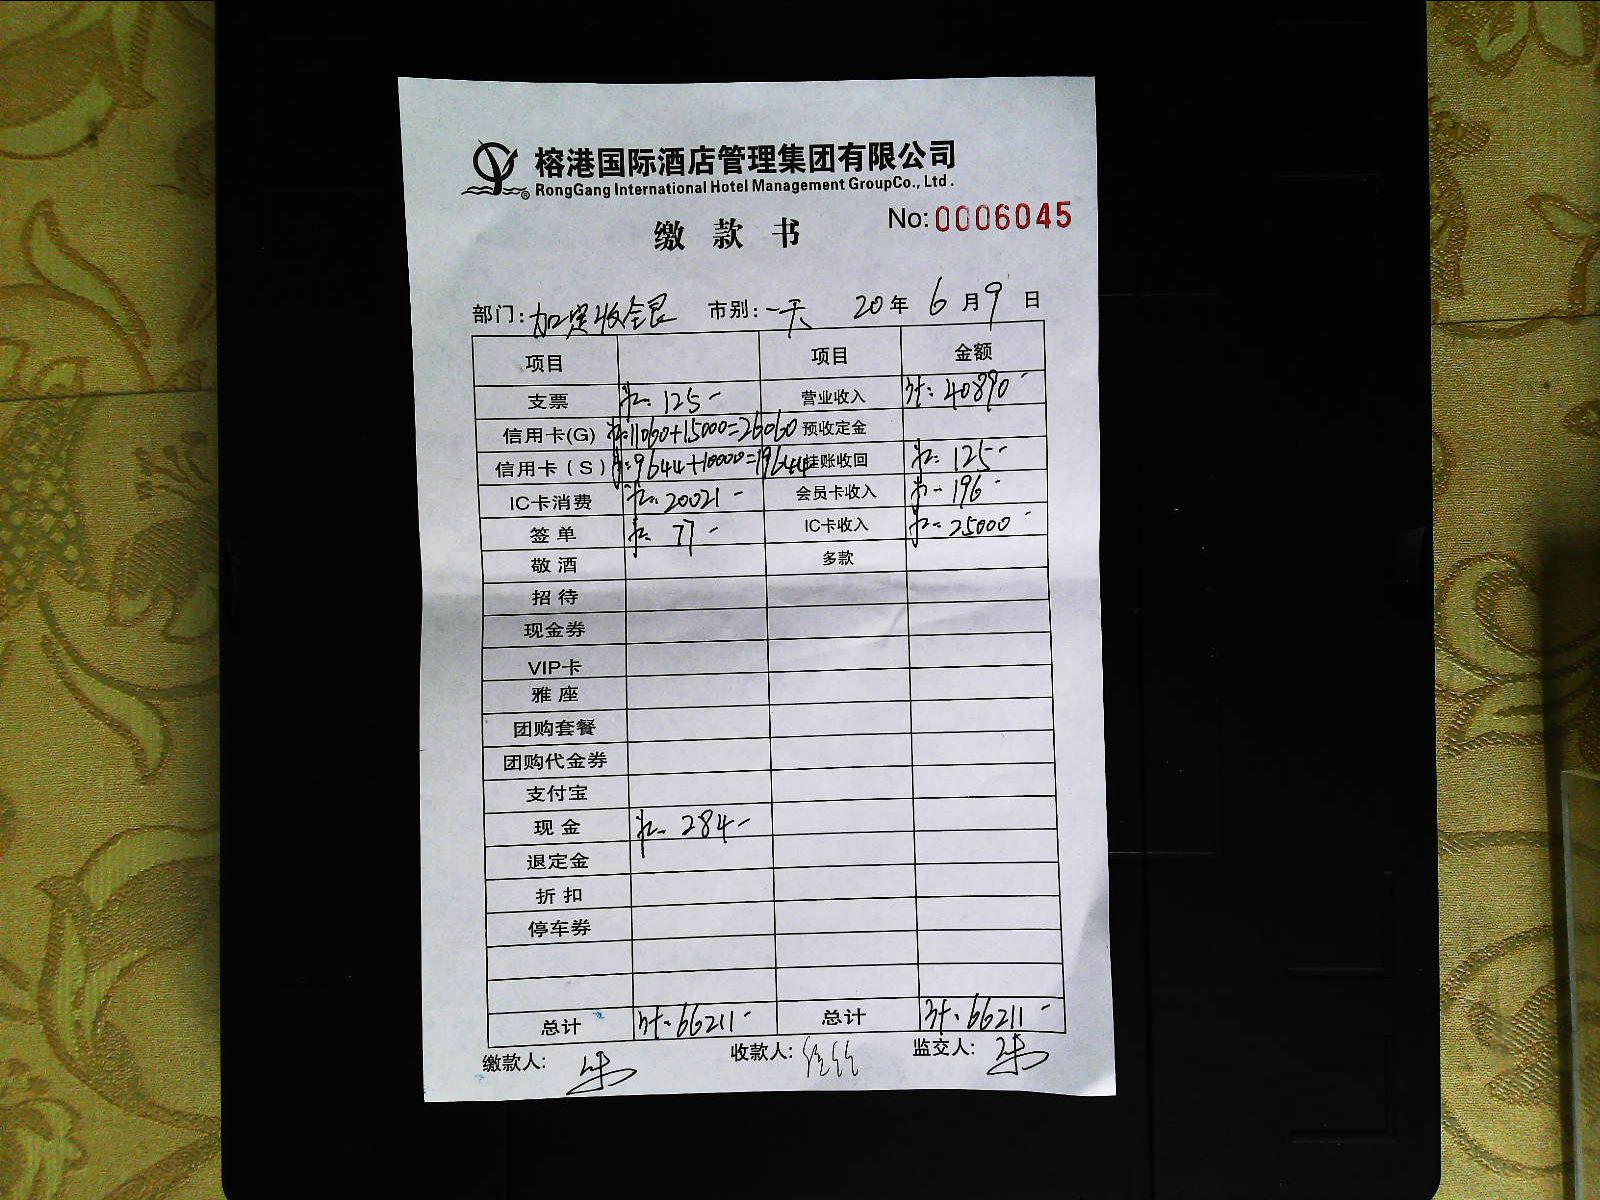 榕港国际酒店管理集团有限公司
RongGang International Hotel Management GroupCo., Ltd.
缴款书 No:0006045
部门:加宴收全银 市别:一天 20年6月9日
项目 项目 金额
支票 125- 营业收入 计:40890-
信用卡(G) 11060+15000=26060 预收定金
信用卡(S) 9644+10000=19644 挂账收回 125-
IC卡消费 20021- 会员卡收入 196-
签单 77- IC卡收入 25000-
敬酒 多款
招待
现金券
VIP卡
雅座
团购套餐
团购代金券
支付宝
现金 284-
退定金
折扣
停车券
总计 计:66211- 总计 计:66211-
缴款人: 朱 收款人: 监交人: 朱